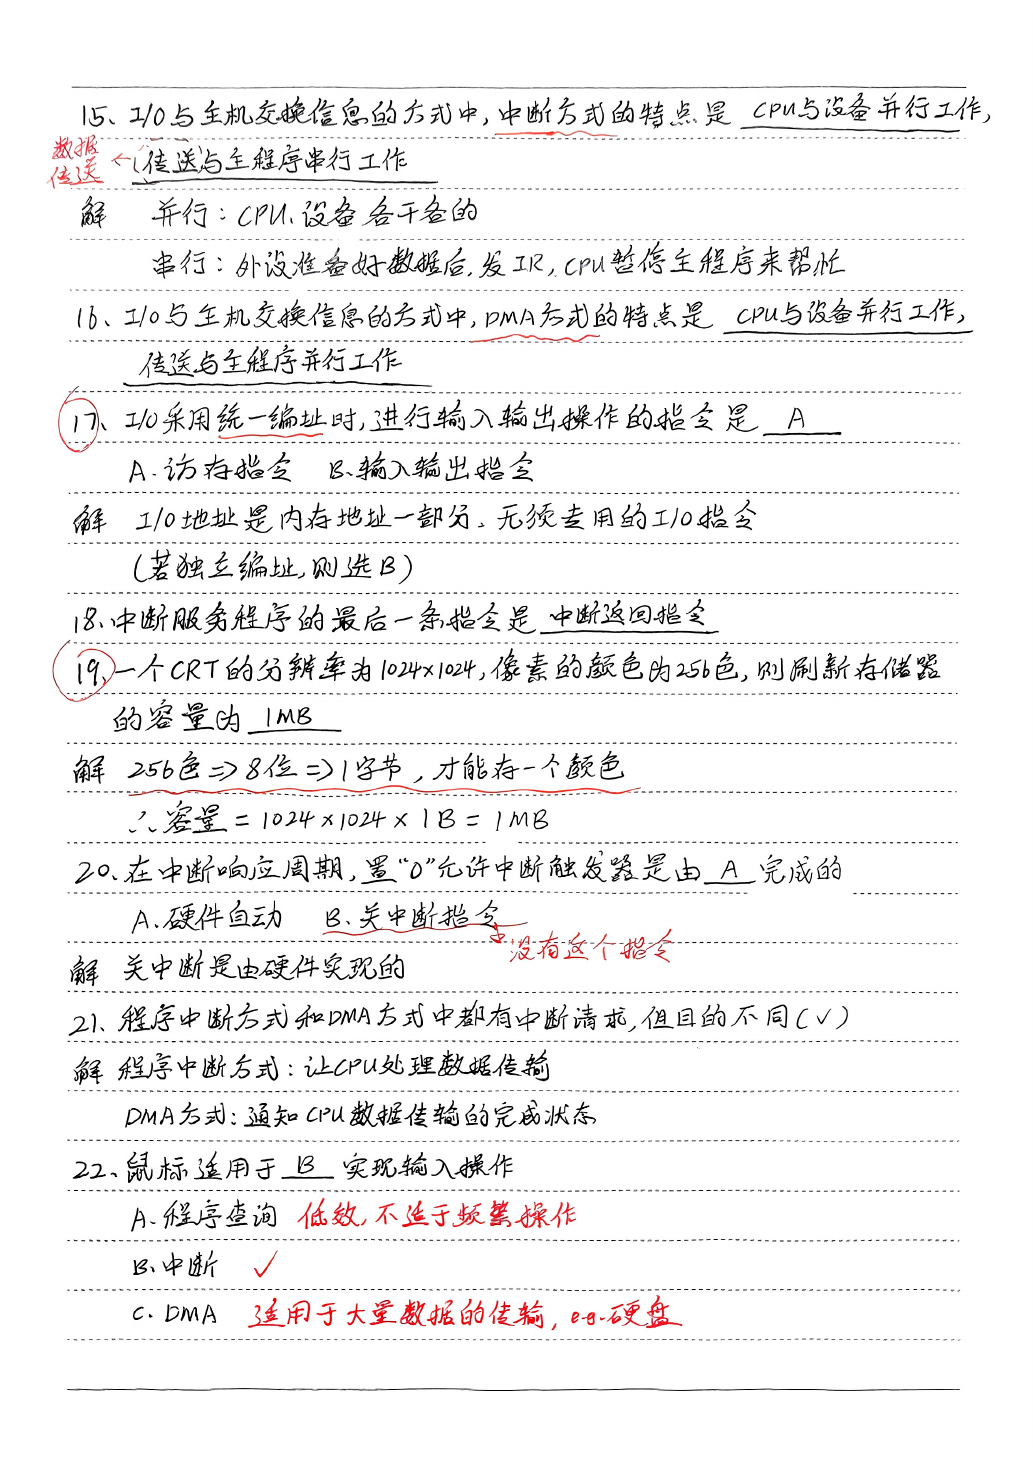 15、I/O与主机交换信息的方式中,中断方式的特点是 CPU与设备并行工作,
数据传送 ← 传送与主程序串行工作
解 并行：CPU、设备各干各的
串行：外设准备好数据后,发IR,CPU暂停主程序来帮忙
16、I/O与主机交换信息的方式中,DMA方式的特点是 CPU与设备并行工作,
传送与主程序并行工作
17、I/O采用统一编址时,进行输入输出操作的指令是 A
A.访存指令 B.输入输出指令
解 I/O地址是内存地址一部分、无须专用的I/O指令
(若独立编址,则选B)
18、中断服务程序的最后一条指令是 中断返回指令
19、一个CRT的分辨率为1024×1024,像素的颜色为256色,则刷新存储器
的容量为 1MB
解 256色⇒8位⇒1字节,才能存一个颜色
∴容量=1024×1024×1B=1MB
20、在中断响应周期,置“0”允许中断触发器是由 A 完成的
A.硬件自动 B.关中断指令
没有这个指令
解 关中断是由硬件实现的
21、程序中断方式和DMA方式中都有中断请求,但目的不同(✓)
解 程序中断方式：让CPU处理数据传输
DMA方式：通知CPU数据传输的完成状态
22、鼠标适用于 B 实现输入操作
A.程序查询 低效,不适于频繁操作
B.中断 ✓
C.DMA 适用于大量数据的传输,e.g.硬盘